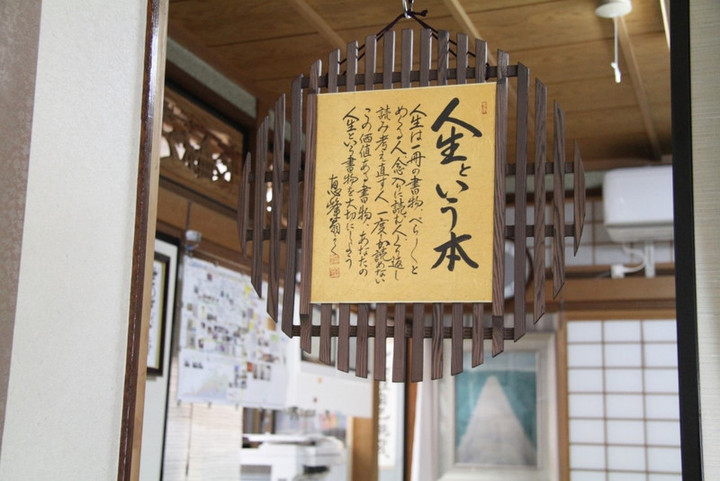 人生という本
人生は一冊の書物、ぺらぺらと
めくる人、念入りに読む人、くり返し
読み考え直す人 一度しか読めない
この価値ある書物、あなたの
人生という書物を大切にしよう